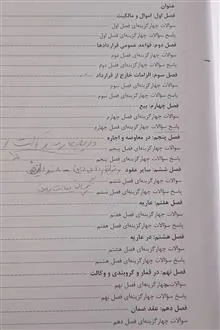 عنوان
فصل اول: اموال و مالکیت
سوالات چهارگزینه‌ای فصل اول
پاسخ سوالات چهارگزینه‌ای فصل اول
فصل دوم: قواعد عمومی قراردادها
سوالات چهارگزینه‌ای فصل دوم
پاسخ سوالات چهارگزینه‌ای فصل دوم
فصل سوم: الزامات خارج از قرارداد
سوالات چهارگزینه‌ای فصل سوم
پاسخ سوالات چهارگزینه‌ای فصل سوم
فصل چهارم: بیع
سوالات چهارگزینه‌ای فصل چهارم
پاسخ سوالات چهارگزینه‌ای فصل چهارم
فصل پنجم: در معاوضه و اجاره
سوالات چهارگزینه‌ای فصل پنجم
پاسخ سوالات چهارگزینه‌ای فصل پنجم
فصل ششم: سایر عقود
سوالات چهارگزینه‌ای فصل ششم
پاسخ سوالات چهارگزینه‌ای فصل ششم
فصل هفتم: عاریه
سوالات چهارگزینه‌ای فصل هفتم
پاسخ سوالات چهارگزینه‌ای فصل هفتم
فصل هشتم: در عاریه
سوالات چهارگزینه‌ای فصل هشتم
پاسخ سوالات چهارگزینه‌ای فصل هشتم
فصل نهم: در قمار و گروبندی و وکالت
سوالات چهارگزینه‌ای فصل نهم
پاسخ سوالات چهارگزینه‌ای فصل نهم
فصل دهم: عقد ضمان
سوالات چهارگزینه‌ای فصل دهم